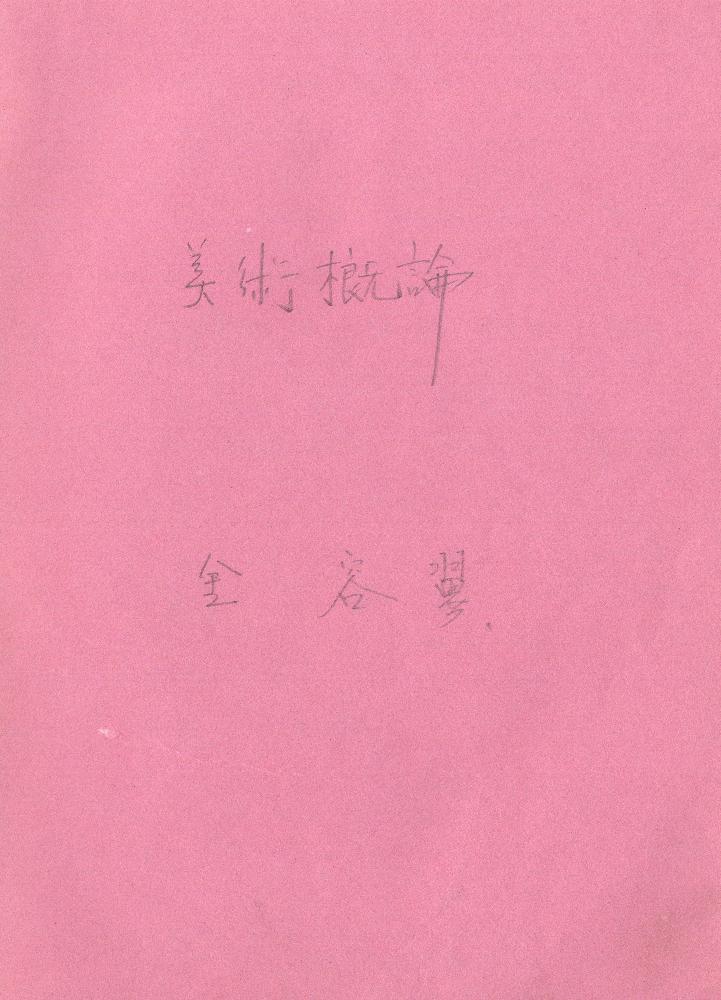 美術概論
金 容翼.